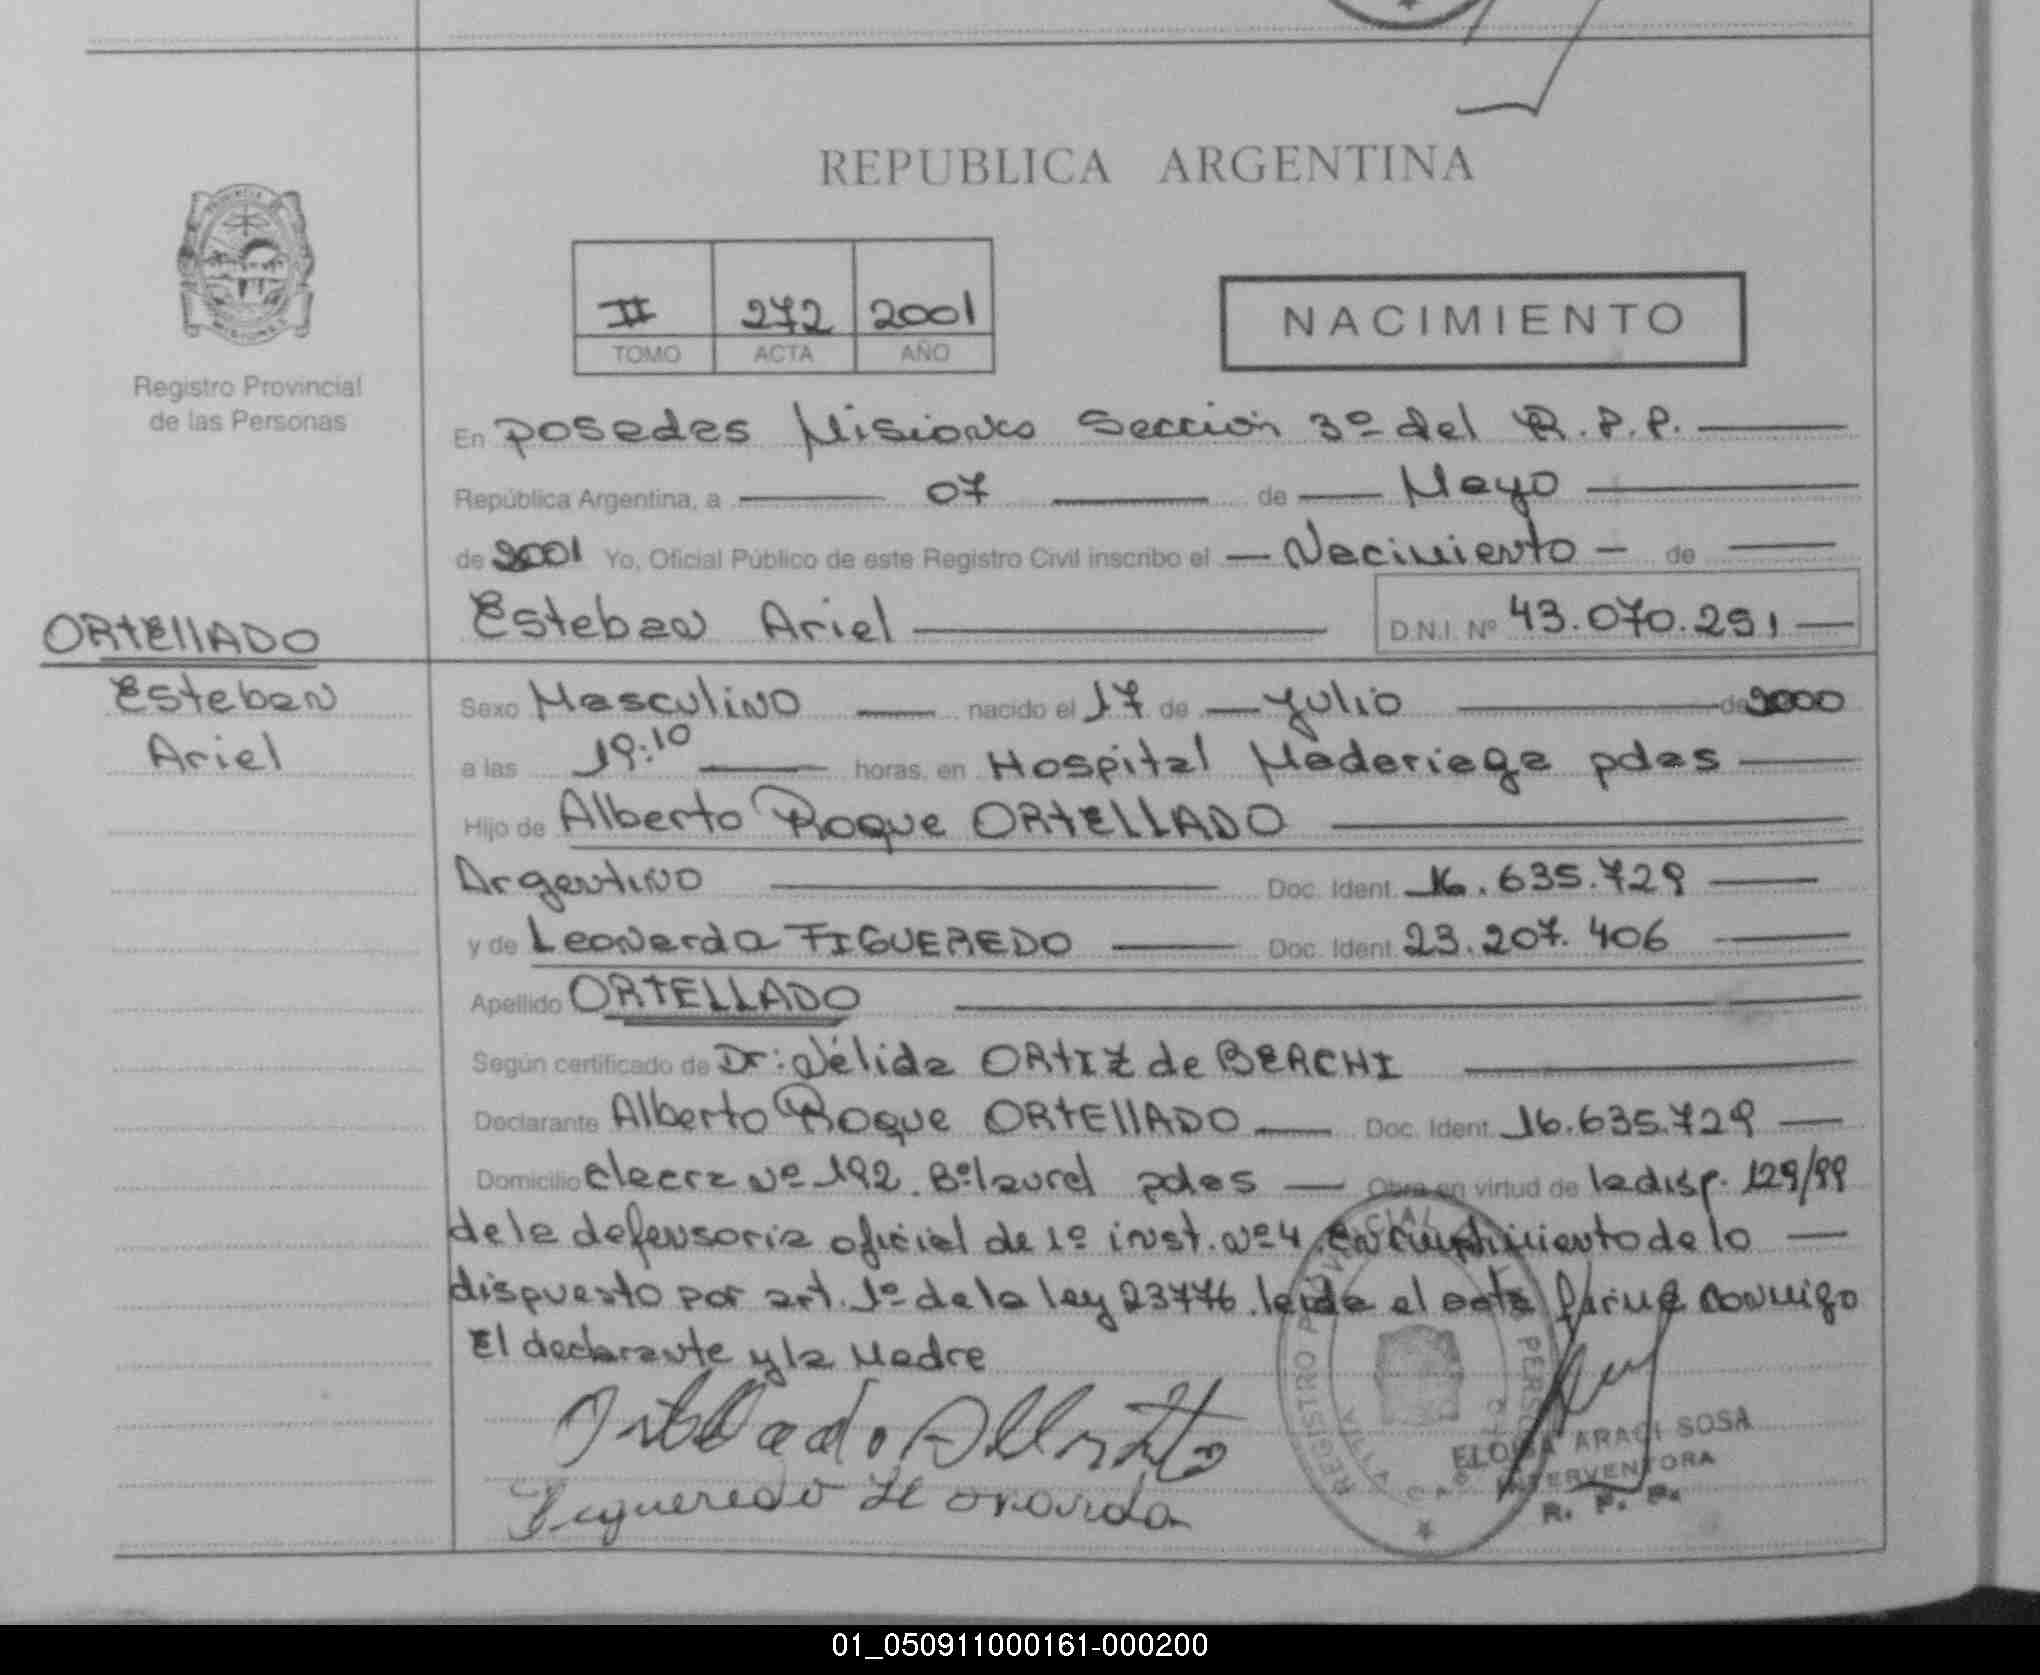 REPUBLICA ARGENTINA
II 272 2001
TOMO ACTA AÑO
NACIMIENTO
Registro Provincial
de las Personas
En Posadas Misiones Sección 3º del R.P.P.
República Argentina, a 07 de Mayo
de 2001 Yo, Oficial Público de este Registro Civil inscribo el Nacimiento de
Esteban Ariel D.N.I. Nº 43.070.251
ORTELLADO
Esteban
Ariel
Sexo Masculino nacido el 17 de Julio de 2000
a las 19:10 horas, en Hospital Madariaga pdas
Hijo de Alberto Roque ORTELLADO
Argentino Doc. Ident. 16.635.729
y de Leonarda FIGUEREDO Doc. Ident. 23.207.406
Apellido ORTELLADO
Según certificado de Dr: Nélida ORTIZ de BERCHI
Declarante Alberto Roque ORTELLADO Doc. Ident. 16.635.729
Domicilio Chacra Nº 192. Bº laurel pdas Obra en virtud de la disp. 129/99
de la defensoria oficial de 1º inst. Nº 4 En cumplimiento de lo
dispuesto por art. 1º de la ley 23776. leida el acta firma conmigo
El declarante y la Madre
Ortellado Alberto
Figueredo Leonarda
REGISTRO PROVINCIAL
ELOISA ARACI SOSA
INTERVENTORA
R. P. P.
01_050911000161-000200